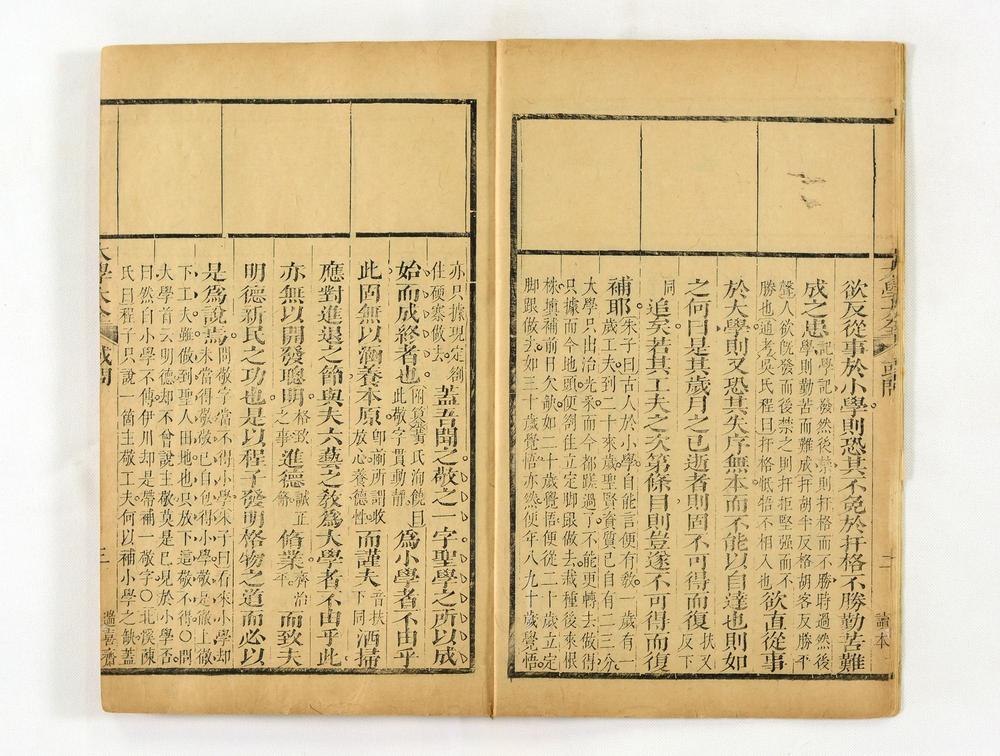 欲反從事於小學則恐其不免於扞格不勝勤苦難
成之患記學記發然後禁則扞格而不勝時過然後
學則勤苦而難成胡半反格胡客反勝平
聲人欲旣發而後禁之則扞拒堅强而不
勝也通考吳氏程曰扞格牴牾不相入也欲直從事
於大學則又恐其失序無本而不能以自達也則如
之何曰是其歲月之已逝者則固不可得而復扶又反下
同追矣若其工夫之次第條目則豈遂不可得而復
補耶朱子曰古人於小學自能言便有敎一歲有一
歲工夫到二十來歲聖賢資質已自有二三分
大學只出治光采而今都蹉過了不能更轉去做得
只據而今地頭便劄住立定脚跟做去栽種後來根
株塡補前日欠缺如二十歲覺悟便從二十歲立定
脚跟做去如三十歲覺悟亦然便年八九十歲覺悟
讀本
亦只據現定劄
住硬寨做去蓋吾聞之敬之一字聖學之所以成
始而成終者也附纂黃氏洵饒曰
此敬字貫動靜爲小學者不由乎
此固無以涵養本原卽兩所謂收
放心養德性而謹夫音扶下同洒掃
應對進退之節與夫六藝之敎爲大學者不由乎此
亦無以開發聰明格致之事進德誠正脩業齊治平而致夫
明德新民之功也是以程子發明格物之道而必以
是爲說焉問敬字當不得小學朱子曰看來小學却
未當得敬敬已自包得小學敬是徹上徹
下工夫雖做到聖人田地也只放下這敬不得○問
大學首云明德却不曾說主敬莫是已見於小學否
曰然自小學不傳伊川却是帶補一敬字○北溪陳
氏曰程子只說一箇主敬工夫可以補小學之缺蓋
大學大全 或問 三